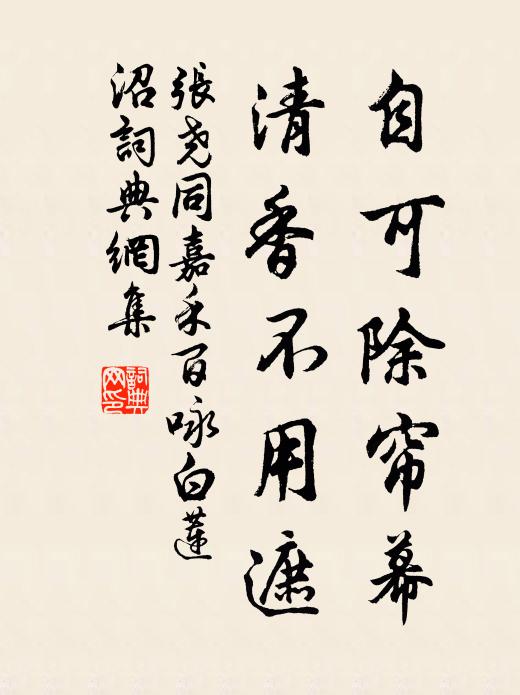 自可除帘幕
清香不用遮
張尧同嘉禾百咏白蓮
沼詞典網集
詞典网印